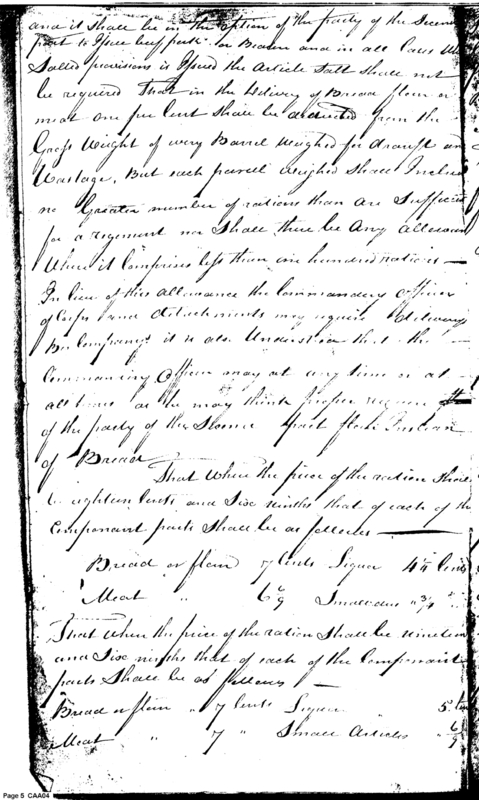 and it shall be in the option of the party of the Second
part to Issue beef pork or Bacon and in all Cases Wh
Salted provisions is Issued the Article Salt shall not
be required That in the Delivery of Bread flour or
meat one per Cent shall be deducted from the
Gross Weight of every Barrel Weighed for draught an
Wastage, But each parcell Weighed shall Inclu
no Greater number of rations than are Sufficie
for a regiment nor Shall there be Any allowan
Where it Comprises less than one hundred rations —
In lieu of this allowance the Commanding officer
of Corps and detachments may require delivery
By Company it is also Understood that the —
Commanding Officer may at any time or at —
all times as he may think proper require
of the party of the Second part flour Instead
of Bread
That When the price of the ration Shall
be eighteen Cents and Six ninths that of each of the
Componant parts Shall be as follows —
Bread or flour 7 Cents Liquor 4 Cents
Meat " 6 Small "
That When the price of the ration Shall be nineteen
and Six ninths that of each of the Componant
parts Shall be as follows —
Bread or flour " 7 Cents Liquor " 5
Meat " 7 " Small Articles " 6/9
Page 5 CAA04